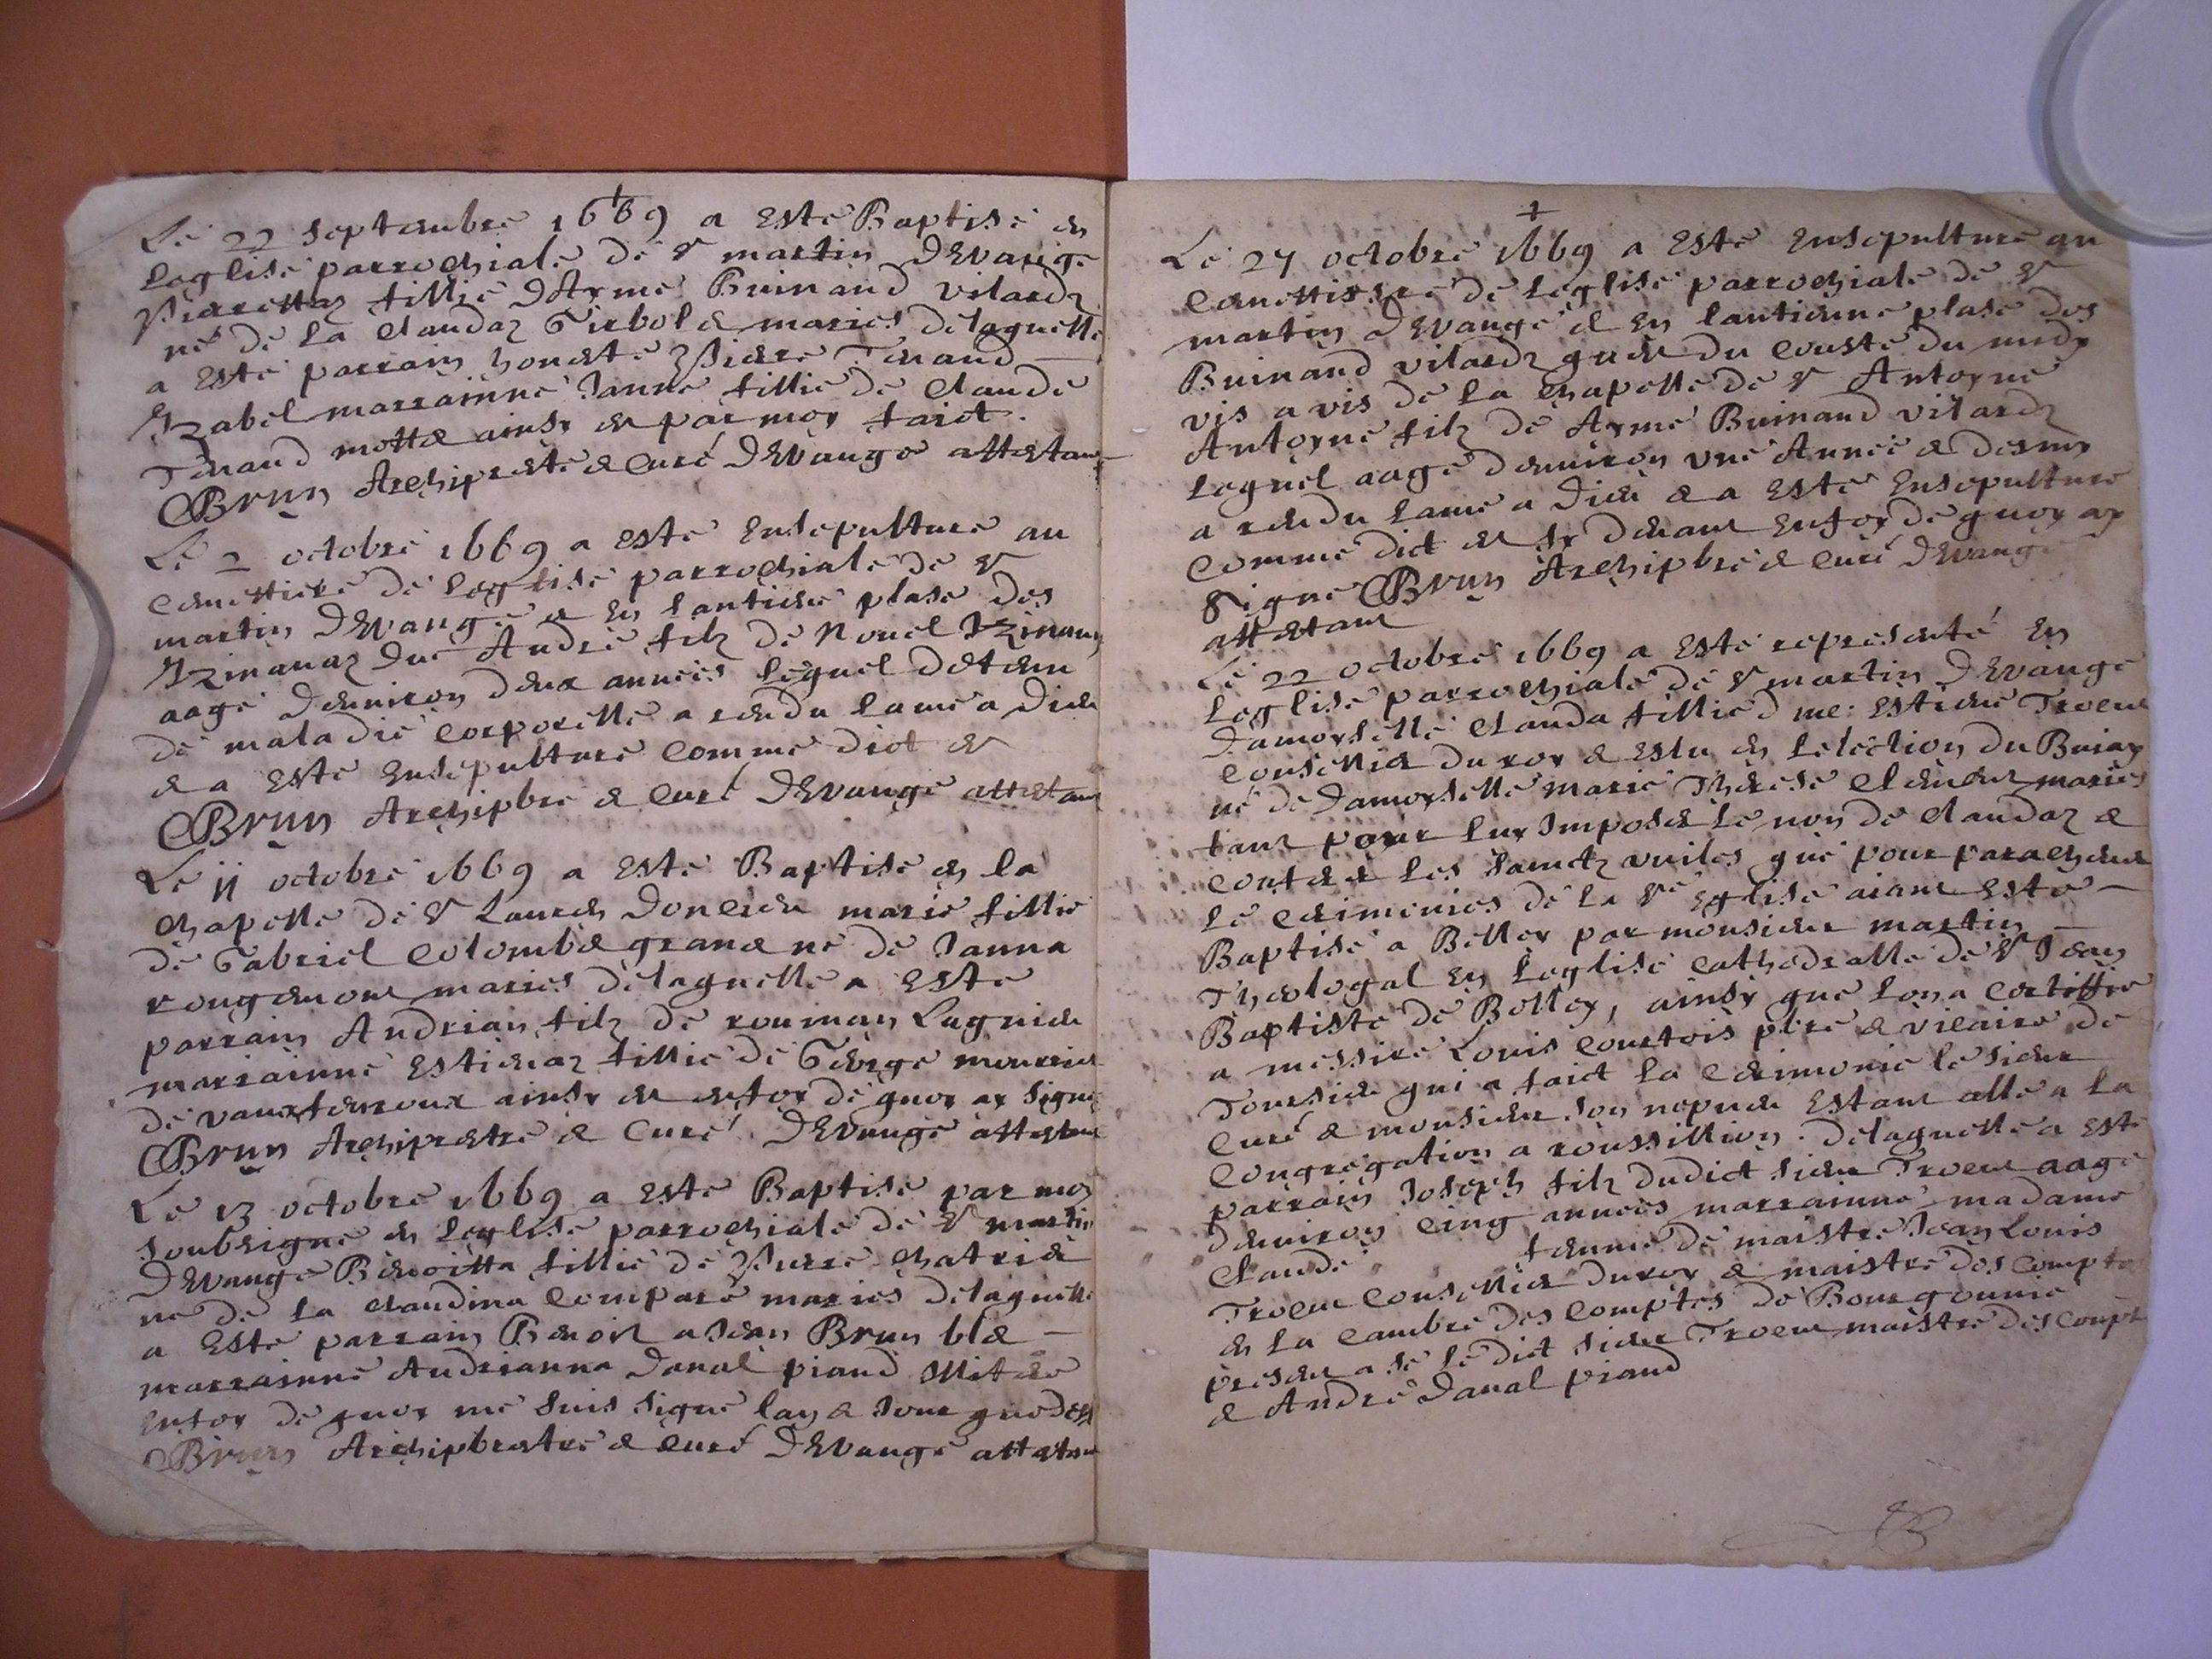 Le 22 septembre 1669 a esté Baptisé en
Leglise parrochiale de St martin DEvange
Pierrettaz fillie dAymé Buinand vilardz
né de la claudaz Girbol & mariés delaquelle
a esté parrain honeste Pierre Tenand
Yzabel marrainne Janne fillie de claude
Tenand mottæ ainsy est par moy faict.
Brun Archiprestre & Curé DEvange attestant
Le 2 octobre 1669 a esté Ensepulturé au
cemettiere de Leglise parrochiale de St
martin DEvange & en lantiene plase des
Izinanaz André filz de Nouel Izinand
aagé denviron deux années Lequel detenu
de maladie corporelle a rendu lame a Dieu
& a esté Ensepulturé comme dict est
Brun Archipbre & Curé DEvange attestant
Le 11 octobre 1669 a esté Baptisé en la
chapelle de St Laurens Doncieu marie fillie
de Gabriel Colombæ né de Janna
rougemont mariés delaquelle a esté
parrain Andrian filz de rouman Lagnieu
marrainne Estienaz fillie de George mourrier
de ainsy est enfoy de quoy ay signé
Brun Archiprestre & Curé DEvange attestant
Le 13 octobre 1669 a esté Baptisé par moy
soubsigné en Leglise parrochiale de St martin
DEvange Benoitta fillie de Pierre chatrier
né de la claudina Comparé mariés delaquelle
a esté parrain Benoit a Jean Brun blæ
marrainne Andrianna Danal piand
enfoy de quoy me suis signé lan & jour quedess
Brun Archipbrestre & Curé DEvange attestant
Le 27 octobre 1669 a esté Ensepulturé au
cemettierre de Leglise parrochiale de St
martin dEvange & en lantienne plase des
Buinand vilardz qu est du cousté du midy
vis a vis de la chapelle de St Antoyne
Antoyne filz de Aymé Buinand vilardz
Lequel aagé denviron une Année & demy
a rendu lame a Dieu & a esté Ensepulturé
comme dict est sy devant Enfoy de quoy ay
signé Brun Archipbre & Curé DEvange
attestant
Le 22 octobre 1669 a esté representé En
Leglise parrochiale de St martin DEvange
Damoyselle Clauda fillie d me: Estiene Trocu
conseillier du roy & eslu en Lelection du Buiay
né de Damoyselle marie Therese mariés
tant pour luy Imposer Le non de claudaz &
conferer Les sainctz uuiles que pour parachever
Le cerimonies de la Ste Eglise aiant esté
Baptisé a Belley par monsieur martin
Theologal en Leglise cathedralle de St Jean
Baptiste de Belley, ainsy que lon a certiffié
a messire Louis Courtois pbre & vicaire de
Tousieu qui a faict la cerimonie le sieur
Curé & monsieur son nepueu Estant allé a la
Congregation a roussillion. delaquelle a esté
parrain Joseph filz dudict sieur Trocu aagé
denviron cinq années marrainne madame
Claude femme de maistre Jean Louis
Trocu conseillier du roy & maistre des compte
en la cambre des comptes de Bourgounie
present a se le dict sieur Trocu maistre des compte
& André Danal piand